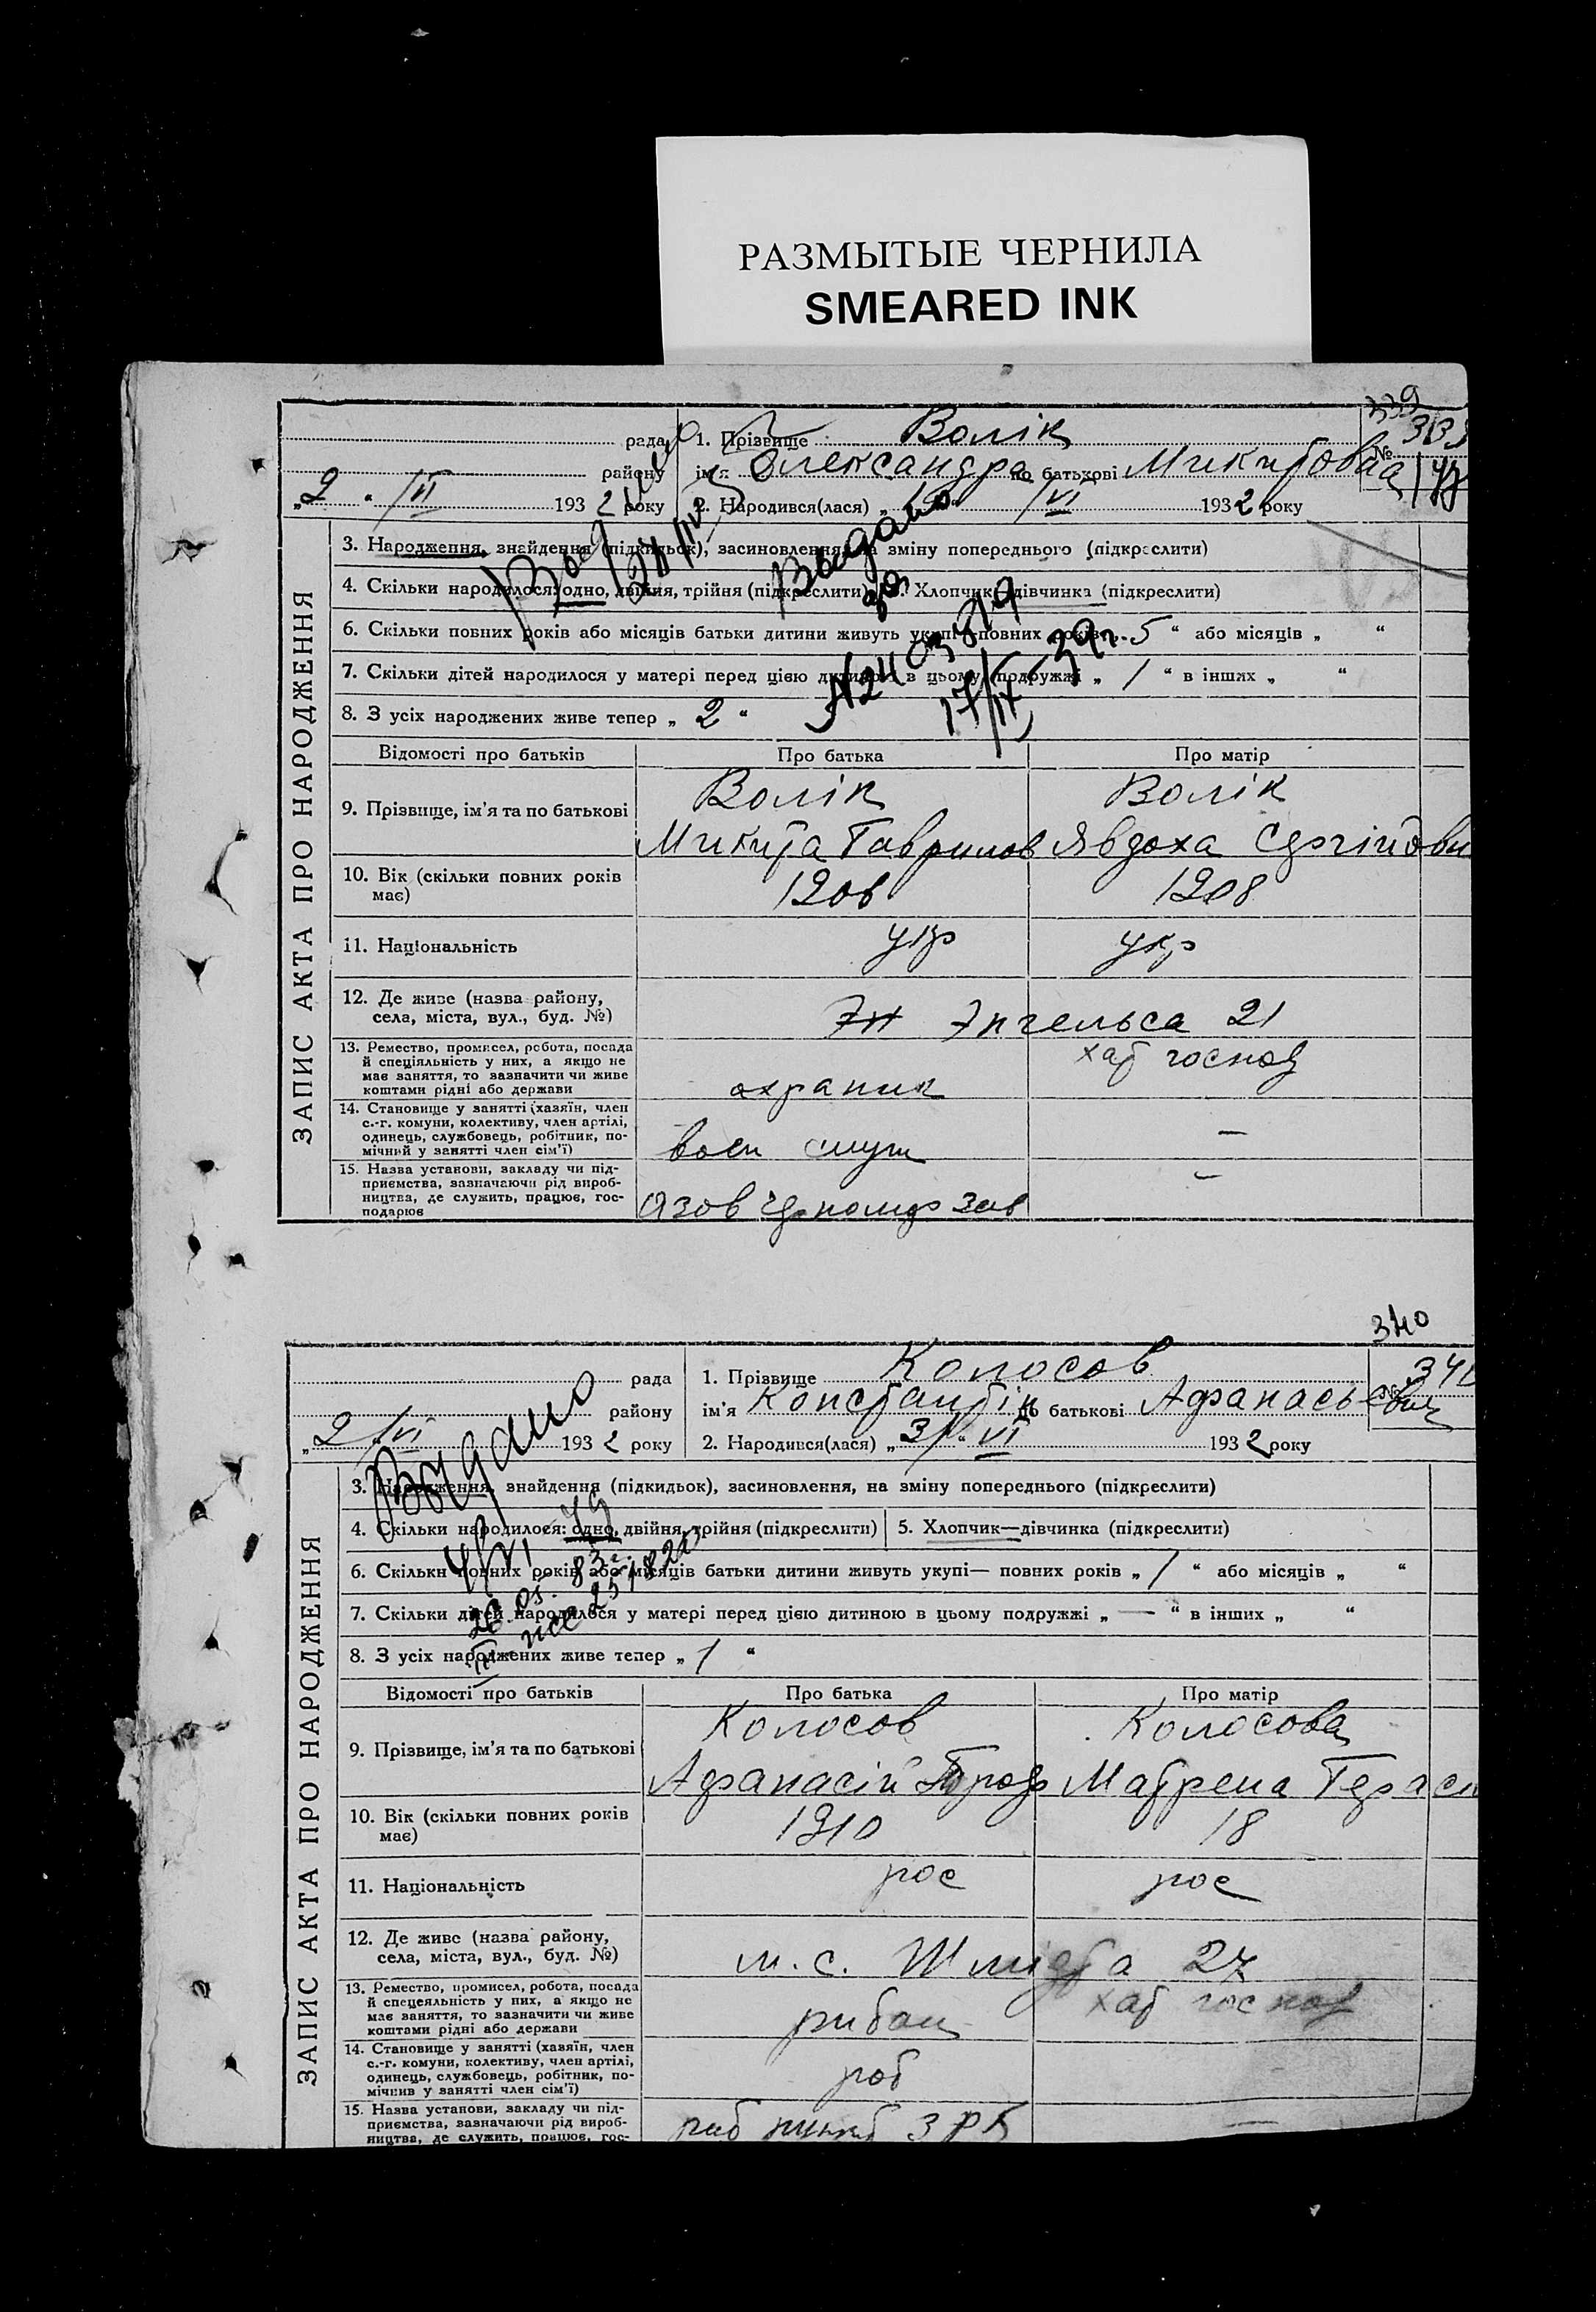 РАЗМЫТЫЕ ЧЕРНИЛА
SMEARED INK
ЗАПИС АКТА ПРО НАРОДЖЕННЯ
339
рада
1. Прізвище Волік
№
району
ім'я Олександра по батькові Микитовна
„2“ 1932 року
2. Народився(лася) 1932 року
3. Народження, знайдення (підкидьок), засиновлення, на зміну попереднього (підкреслити)
4. Скільки народилося: одно, двійня, трійня (підкреслити)
5. Хлопчик—дівчинка (підкреслити)
6. Скільки повних років або місяців батьки дитини живуть укупі—повних років „ 5 “ або місяців „ “
7. Скільки дітей народилося у матері перед цією дитиною в цьому подружжі „ 1 “ в інших „ “
8. З усіх народжених живе тепер „ 2 “
Видано
17/IX 39г.
Відомості про батьків
Про батька
Про матір
9. Прізвище, ім'я та по батькові
Волік
Микита Гаврилов
Волік
Явдоха Сергійовн
10. Вік (скільки повних років має)
1906
1908
11. Національність
укр
укр
12. Де живе (назва району, села, міста, вул., буд. №)
Эн Энгельса 21
13. Ремество, промисел, робота, посада
й спеціяльність у них, а якщо не
має заняття, то зазначити чи живе
коштами рідні або держави
охраник
хат господ
14. Становище у занятті (хазяїн, член
с.-г. комуни, колективу, член артілі,
одинець, службовець, робітник, по-
мічний у занятті член сім'ї)
—
15. Назва установи, закладу чи під-
приємства, зазначаючи рід вироб-
ництва, де служить, працює, гос-
подарює
Азов зав
—
ЗАПИС АКТА ПРО НАРОДЖЕННЯ
340
рада
1. Прізвище Колосов
341
району
ім'я Константін по батькові Афанасьевич
„2/VI 1932 року
2. Народився(лася) „31“ VI 1932 року
Видано
3. Народження, знайдення (підкидьок), засиновлення, на зміну попереднього (підкреслити)
4. Скільки народилося: одно, двійня, трійня (підкреслити)
5. Хлопчик—дівчинка (підкреслити)
6. Скільки повних років або місяців батьки дитини живуть укупі— повних років „ 1 “ або місяців „ “
7. Скільки дітей народилося у матері перед цією дитиною в цьому подружжі „ — “ в інших „ “
8. З усіх народжених живе тепер „ 1 “
Відомості про батьків
Про батька
Про матір
9. Прізвище, ім'я та по батькові
Колосов
Афанасій
Колосова
Матрена Герасим
10. Вік (скільки повних років має)
1910
18
11. Національність
рос
рос
12. Де живе (назва району, села, міста, вул., буд. №)
м. с. Шмидта 27
13. Ремество, промисел, робота, посада
й спецеяльність у них, а якщо не
має заняття, то зазначити чи живе
коштами рідні або держави
рибац
хат господ
14. Становище у занятті (хазяїн, член
с.-г. комуни, колективу, член артілі,
одинець, службовець, робітник, по-
мічнив у занятті член сім'ї)
роб
15. Назва установи, закладу чи під-
приємства, зазначаючи рід вироб-
ництва, де служить, працює, гос-
—